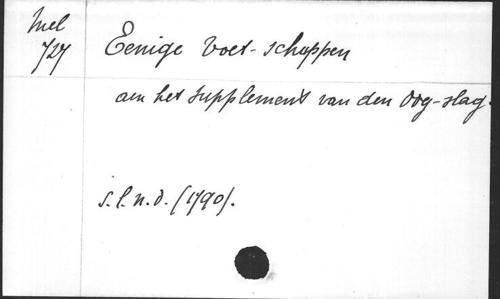 Mel
727
Eenige Voet-schoppen
aen het supplement van den Oog-slag.
s.l.n.d. (1790).